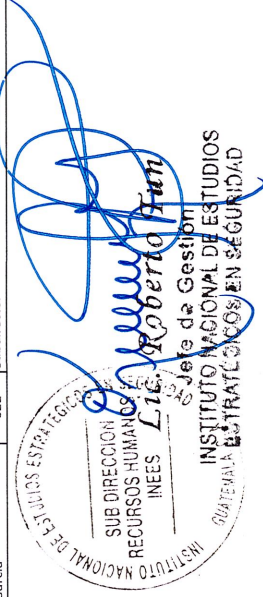 INSTITUTO NACIONAL DE ESTUDIOS ESTRATEGICOS EN SEGURIDAD
SUB DIRECCION
RECURSOS HUMANOS
INEES
GUATEMALA
Lic. Roberto Tun
Jefe de Gestión
INSTITUTO NACIONAL DE ESTUDIOS
ESTRATEGICOS EN SEGURIDAD